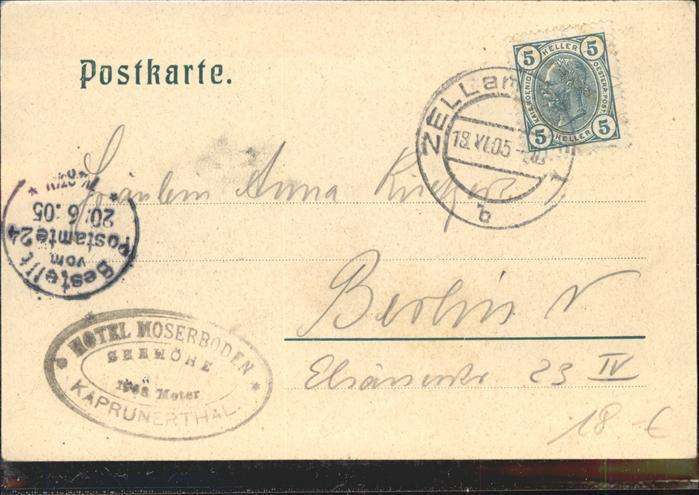 Postkarte.
5 HELLER 5
KAIS. KOENIGL. OESTERR. POST
5 HELLER 5
ZELL am
18.VI.05
b
Fräulein Anna
Bestellt
vom
Postamte 24
20. 6. 05
Berlin N
23 IV
HOTEL MOSERBODEN
SEEHÖHE
Meter
KAPRUNERTHAL
18 - €